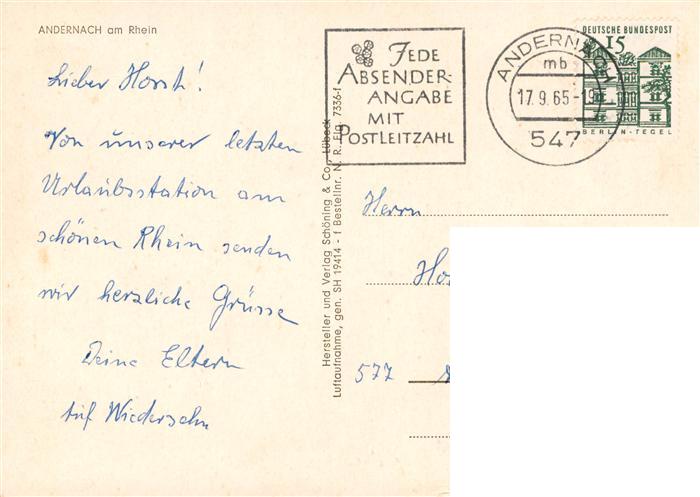 ANDERNACH am Rhein
Lieber Horst!
Von unserer letzten
Urlaubsstation am
schönen Rhein senden
wir herzliche Grüsse
Deine Eltern
Auf Wiedersehn
Hersteller und Verlag Schöning & Co., Lübeck
Luftaufnahme, gen. SH 19414 - f Bestellnr. N. R. Elg. 7336-f
JEDE
ABSENDER-
ANGABE
MIT
POSTLEITZAHL
ANDERNACH
mb
17.9.65-19
547
DEUTSCHE BUNDESPOST
15
BERLIN-TEGEL
Herrn
Ho
577